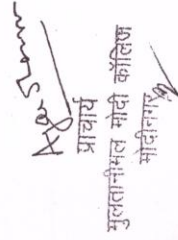 प्राचार्य
मुलतानीमल मोदी कॉलिज
मोदीनगर